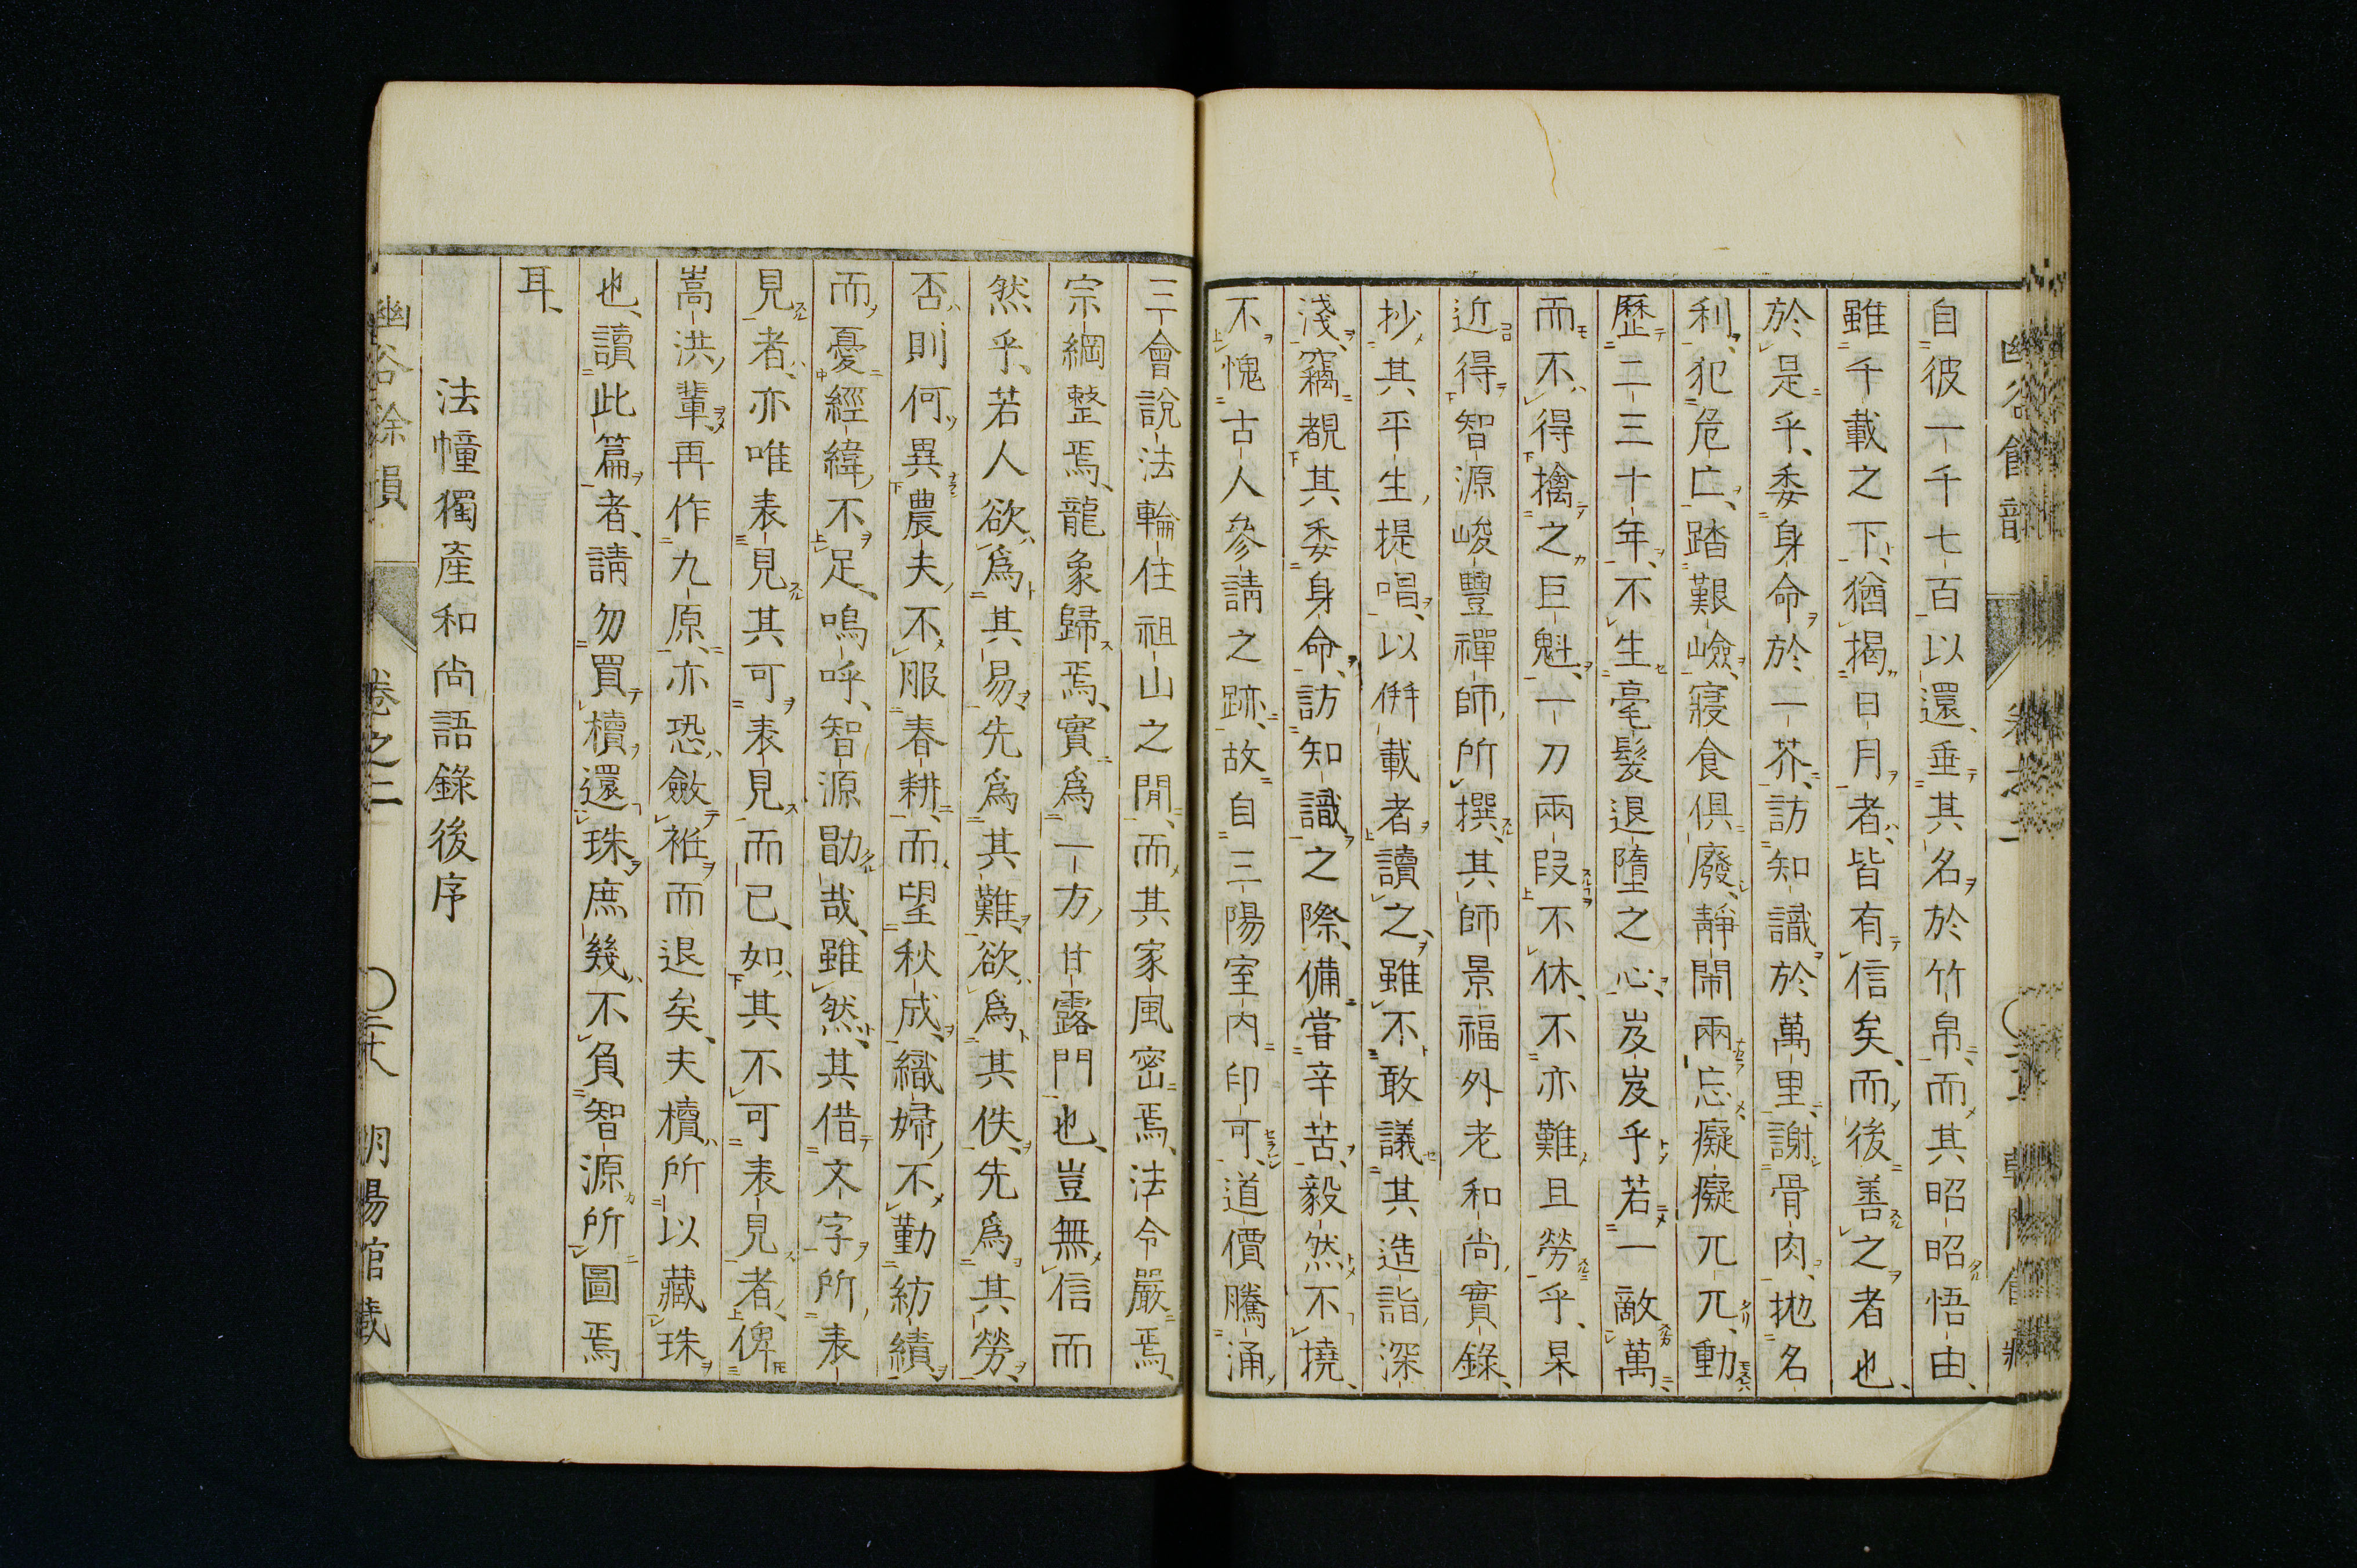 自彼一千七百以還、垂其名於竹帛、而其昭昭悟由、
雖千載之下、猶揭日月者、皆有信矣、而後善之者也、
於是乎、委身命於一芥、訪知識於萬里、謝骨肉、拋名
利、犯危亡、踏艱嶮、寢食俱廢、靜閙兩忘、癡癡兀兀、動
歷二三十年、不生毫髮退墮之心、岌岌乎若一敵萬、
而不得擒之巨魁、一刀兩段不休、不亦難且勞乎、杲
近得智源峻豐禪師所撰、其師景福外老和尚實錄、
抄其平生提唱、以倂載者讀之、雖不敢議其造詣深
淺、竊覩其委身命、訪知識之際、備嘗辛苦、毅然不撓、
不愧古人參請之跡、故自三陽室內印可、道價騰涌、
三會說法輪住祖山之閒、而其家風密焉、法令嚴焉、
宗綱整焉、龍象歸焉、實爲一方甘露門也、豈無信而
然乎、若人欲爲其易、先爲其難、欲爲其佚、先爲其勞、
否則何異農夫不服春耕、而望秋成、織婦不勤紡績、
而憂經緯不足、嗚呼、智源勖哉、雖然、其借文字所表
見者、亦唯表見其可表見而已、如其不可表見者、俾
嵩洪輩再作九原、亦恐斂袵而退矣、夫櫝所以藏珠
也、讀此篇者、請勿買櫝還珠、庶幾不負智源所圖焉
耳、
法幢獨產和尚語錄後序
幽谷餘韻 卷之二 明陽館藏